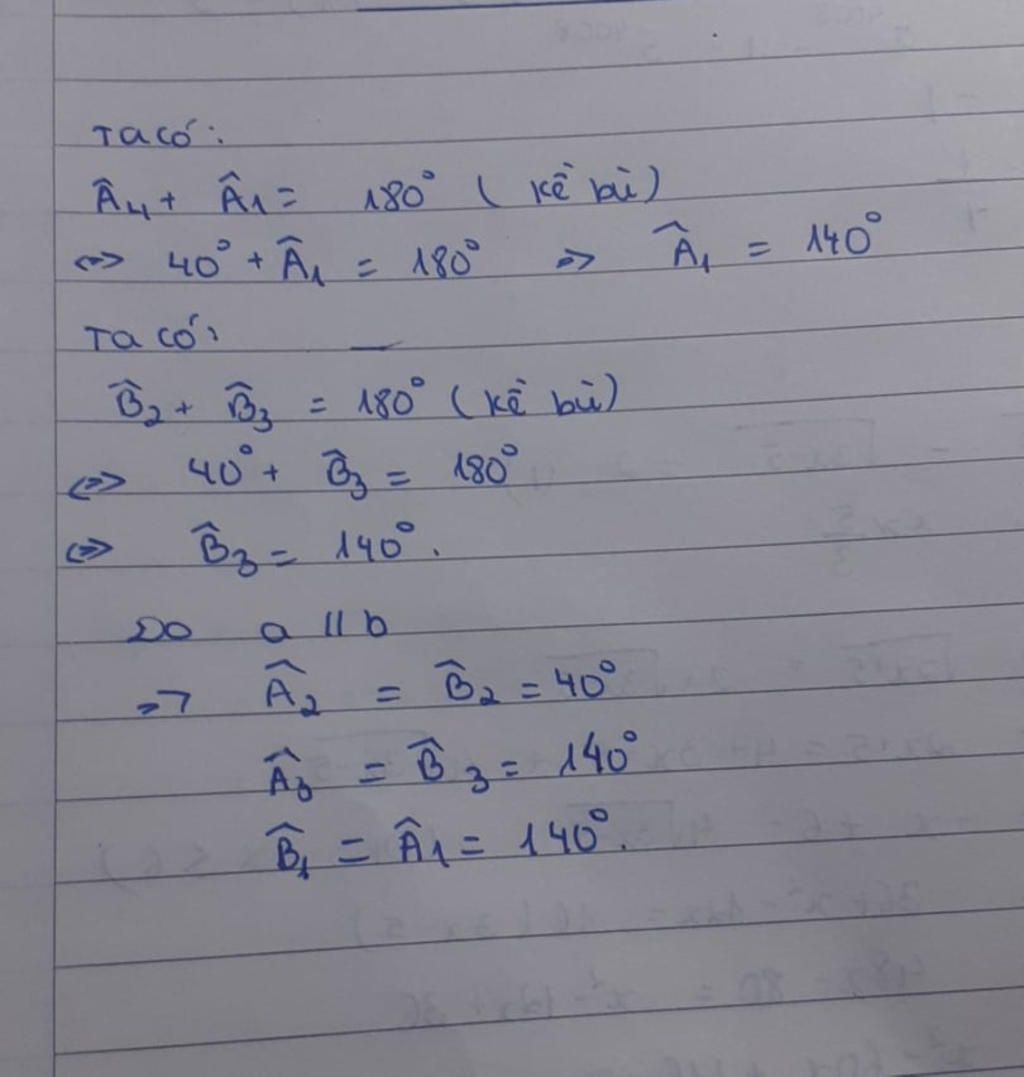 Ta có:
Â₄ + Â₁ = 180° (kề bù)
⇔ 40° + Â₁ = 180° ⇒ Â₁ = 140°
Ta có:
B̂₂ + B̂₃ = 180° (kề bù)
⇔ 40° + B̂₃ = 180°
⇔ B̂₃ = 140°.
Do a // b
⇒ Â₂ = B̂₂ = 40°
Â₃ = B̂₃ = 140°
B̂₁ = Â₁ = 140°.